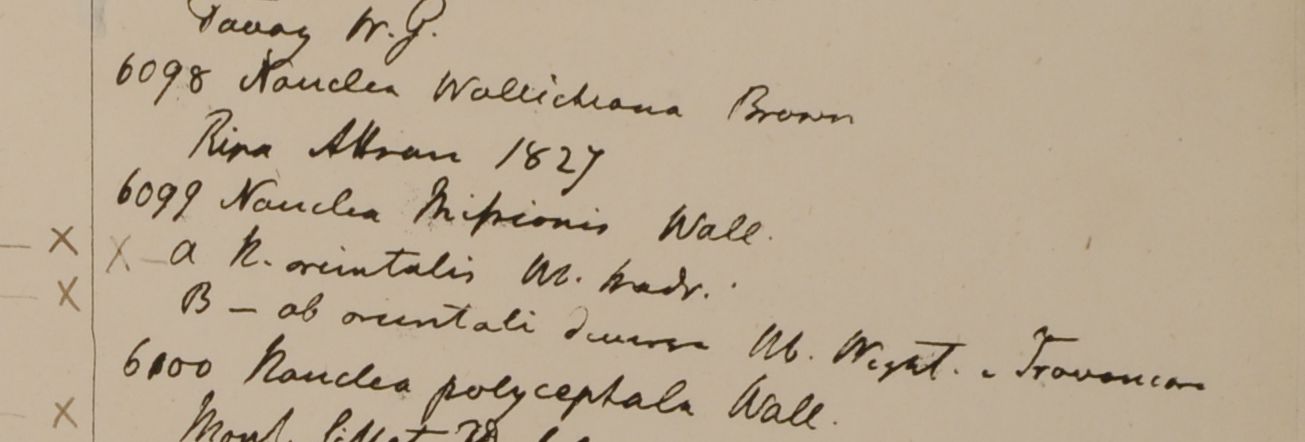 Tavoy W. G.
6098 Nauclea Wallichiana Brown
Ripa Attran 1827
6099 Nauclea Missionis Wall.
a N. orientalis Hb. Madr.
B — ab orientali diversa Hb. Wight. e Travancore
6100 Nauclea polycephala Wall.
Mont. Sillet